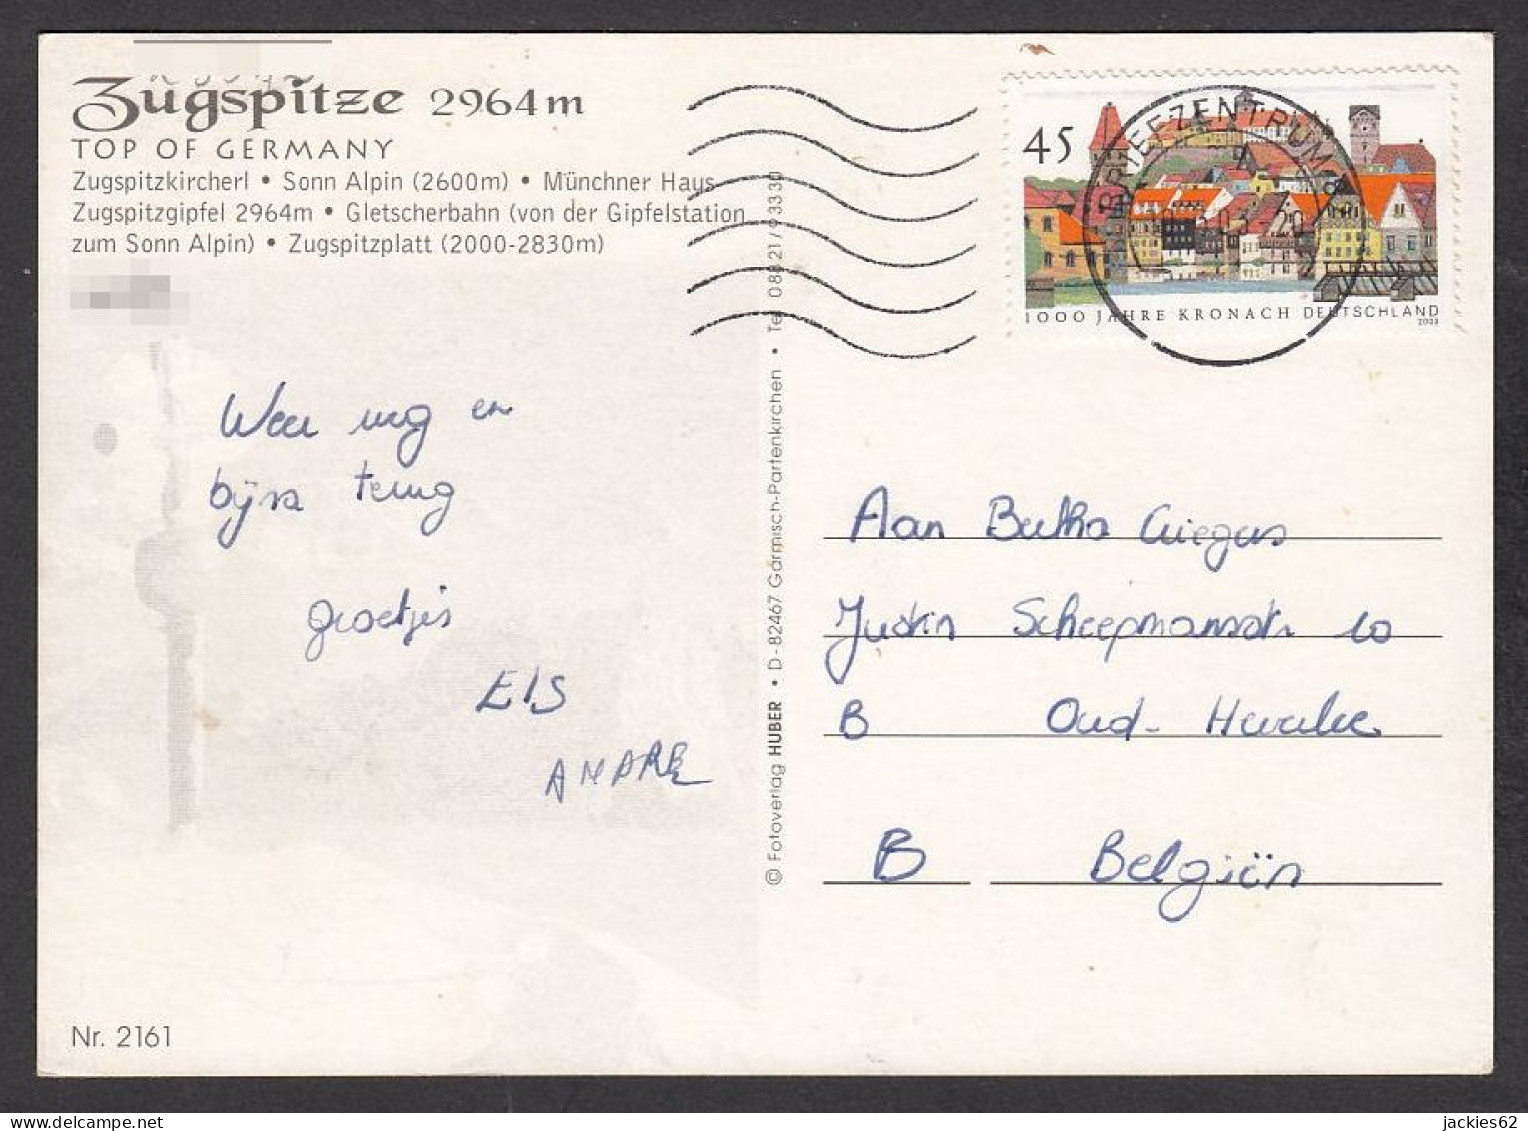 Zugspitze 2964 m
TOP OF GERMANY
Zugspitzkircherl • Sonn Alpin (2600m) • Münchner Haus
Zugspitzgipfel 2964m • Gletscherbahn (von der Gipfelstation
zum Sonn Alpin) • Zugspitzplatt (2000-2830m)
45
BRIEFZENTRUM
1000 JAHRE KRONACH DEUTSCHLAND
2003
weg en
byna terug
groetjes
ELS
ANDRE
© Fotoverlag HUBER • D-82467 Garmisch-Partenkirchen • Tel. 08821/93330
Aan
10
B Oud-
B Belgiën
Nr. 2161
jackies62